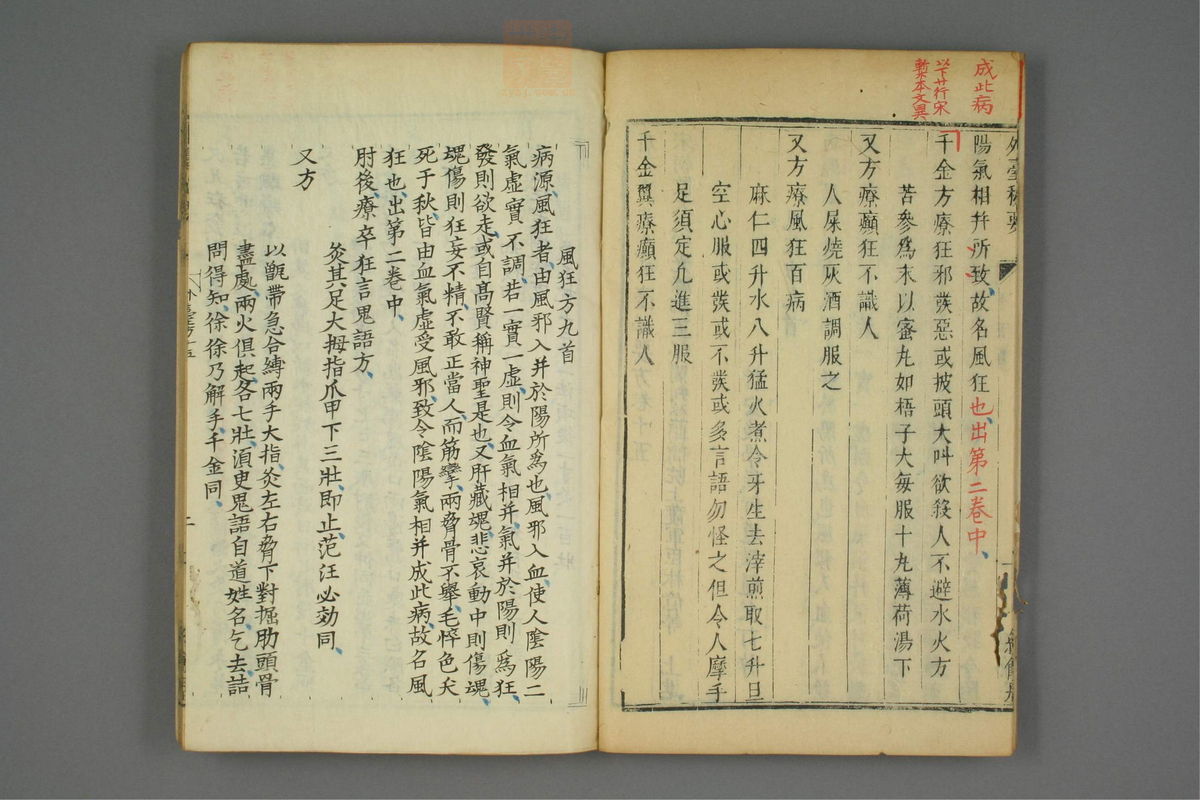 成此病
以下廿行宋
槧本文異
外臺秘要
陽氣相幷所致故名風狂也、出第二卷中、
千金方療狂邪發惡或披頭大叫欲殺人不避水火方
苦參爲末以蜜丸如梧子大每服十丸薄荷湯下
又方療癲狂不識人
人屎燒灰酒調服之
又方療風狂百病
麻仁四升水八升猛火煮令牙生去滓煎取七升旦
空心服或發或不發或多言語勿怪之但令人摩手
足須定凢進三服
千金翼療癲狂不識人
風狂方九首
病源、風狂者、由風邪入幷於陽所爲也、風邪入血、使人陰陽二
氣虛實不調、若一實一虛、則令血氣相幷、氣幷於陽則爲狂、
發則欲走、或自高賢稱神聖是也、又肝藏魂、悲哀動中則傷魂、
魂傷則狂妄不精、不敢正當人、而筋攣、兩脅骨不舉、毛悴色夭
死于秋、皆由血氣虛受風邪、致令陰陽氣相幷成此病、故名風
狂也、出第二卷中、
肘後、療卒狂言鬼語方、
灸其足大拇指爪甲下三壯、即止、范汪必効同、
又方
以甑帶急合縛兩手大指、灸左右脅下對掘肋頭骨
盡處、兩火俱起、各七壯、須臾鬼語自道姓名、乞去、詰
問得知、徐徐乃解手、千金同、